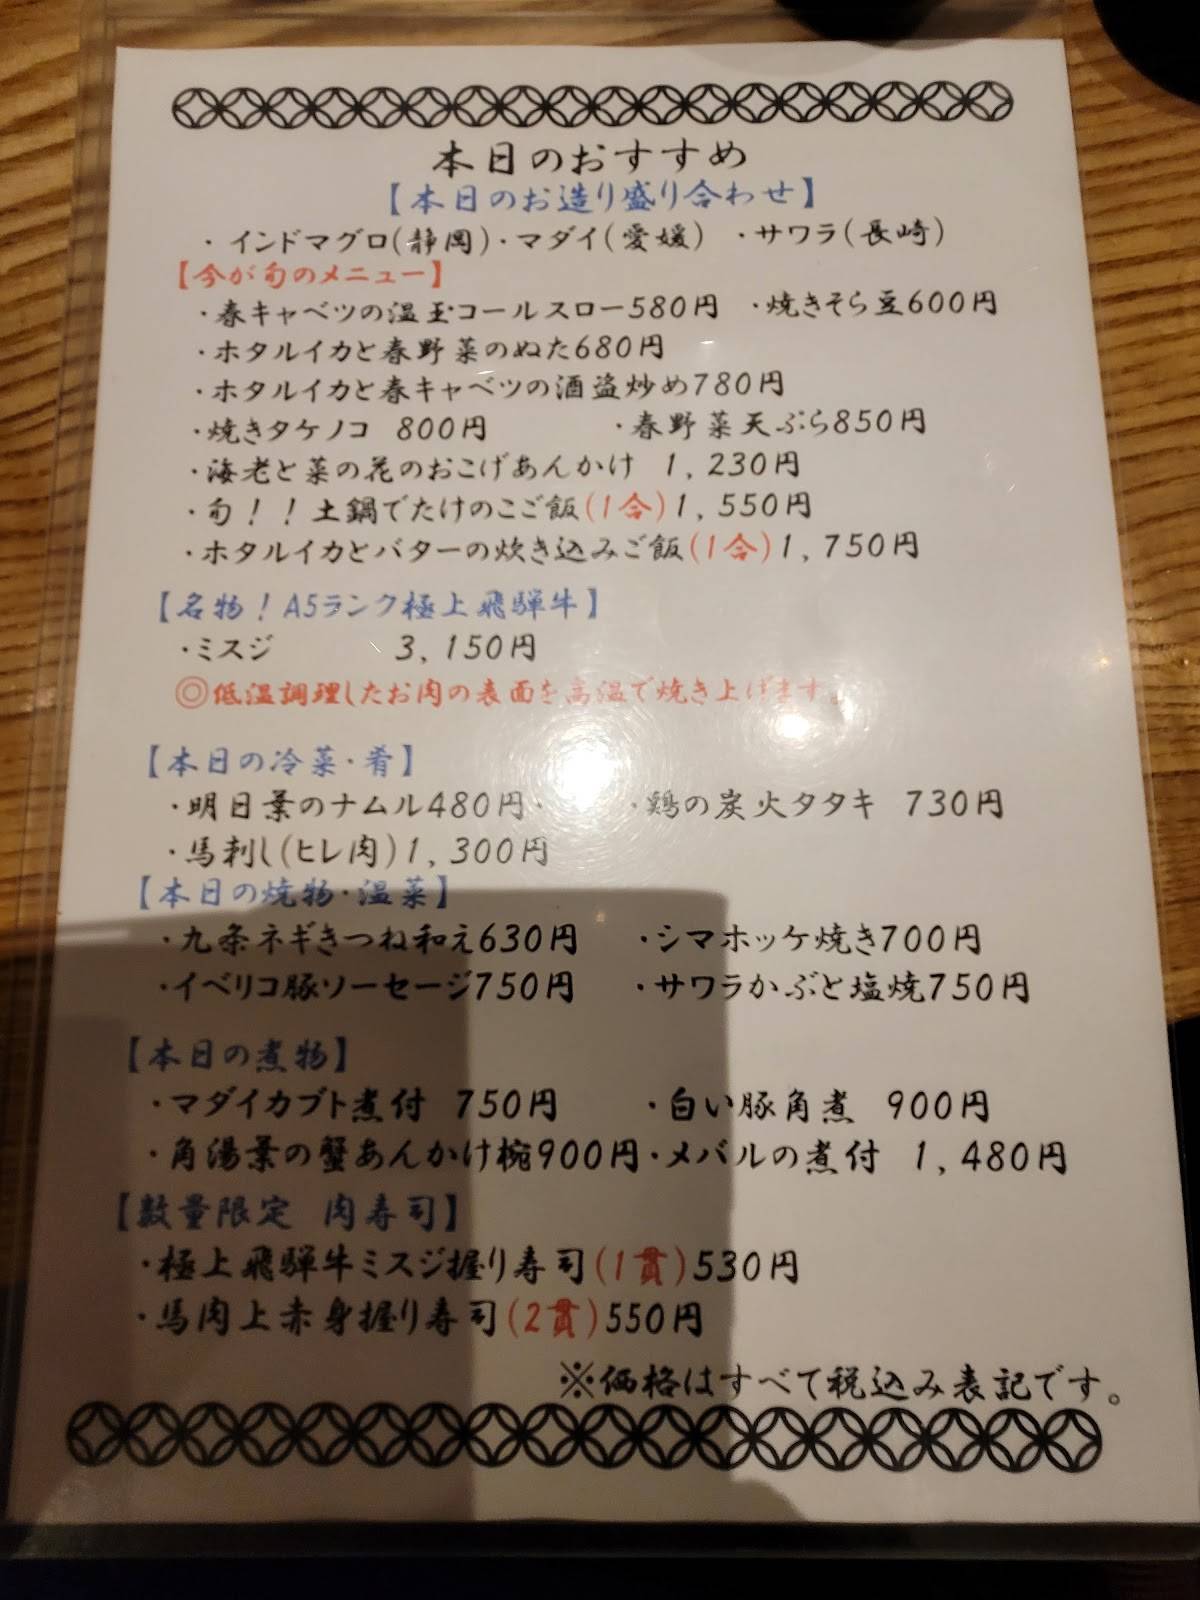 本日のおすすめ
【本日のお造り盛り合わせ】
・インドマグロ(静岡)・マダイ(愛媛) ・サワラ(長崎)
【今が旬のメニュー】
・春キャベツの温玉コールスロー580円 ・焼きそら豆600円
・ホタルイカと春野菜のぬた680円
・ホタルイカと春キャベツの酒盗炒め780円
・焼きタケノコ 800円 ・春野菜天ぷら850円
・海老と菜の花のおこげあんかけ 1,230円
・旬!!土鍋でたけのこご飯(1合)1,550円
・ホタルイカとバターの炊き込みご飯(1合)1,750円
【名物!A5ランク極上飛騨牛】
・ミスジ 3,150円
◎低温調理したお肉の表面を高温で焼き上げます。
【本日の冷菜・肴】
・明日葉のナムル480円・ ・鶏の炭火タタキ 730円
・馬刺し(ヒレ肉)1,300円
【本日の焼物・温菜】
・九条ネギきつね和え630円 ・シマホッケ焼き700円
・イベリコ豚ソーセージ750円 ・サワラかぶと塩焼750円
【本日の煮物】
・マダイカブト煮付 750円 ・白い豚角煮 900円
・角湯葉の蟹あんかけ椀900円・メバルの煮付 1,480円
【数量限定 肉寿司】
・極上飛騨牛ミスジ握り寿司(1貫)530円
・馬肉上赤身握り寿司(2貫)550円
※価格はすべて税込み表記です。